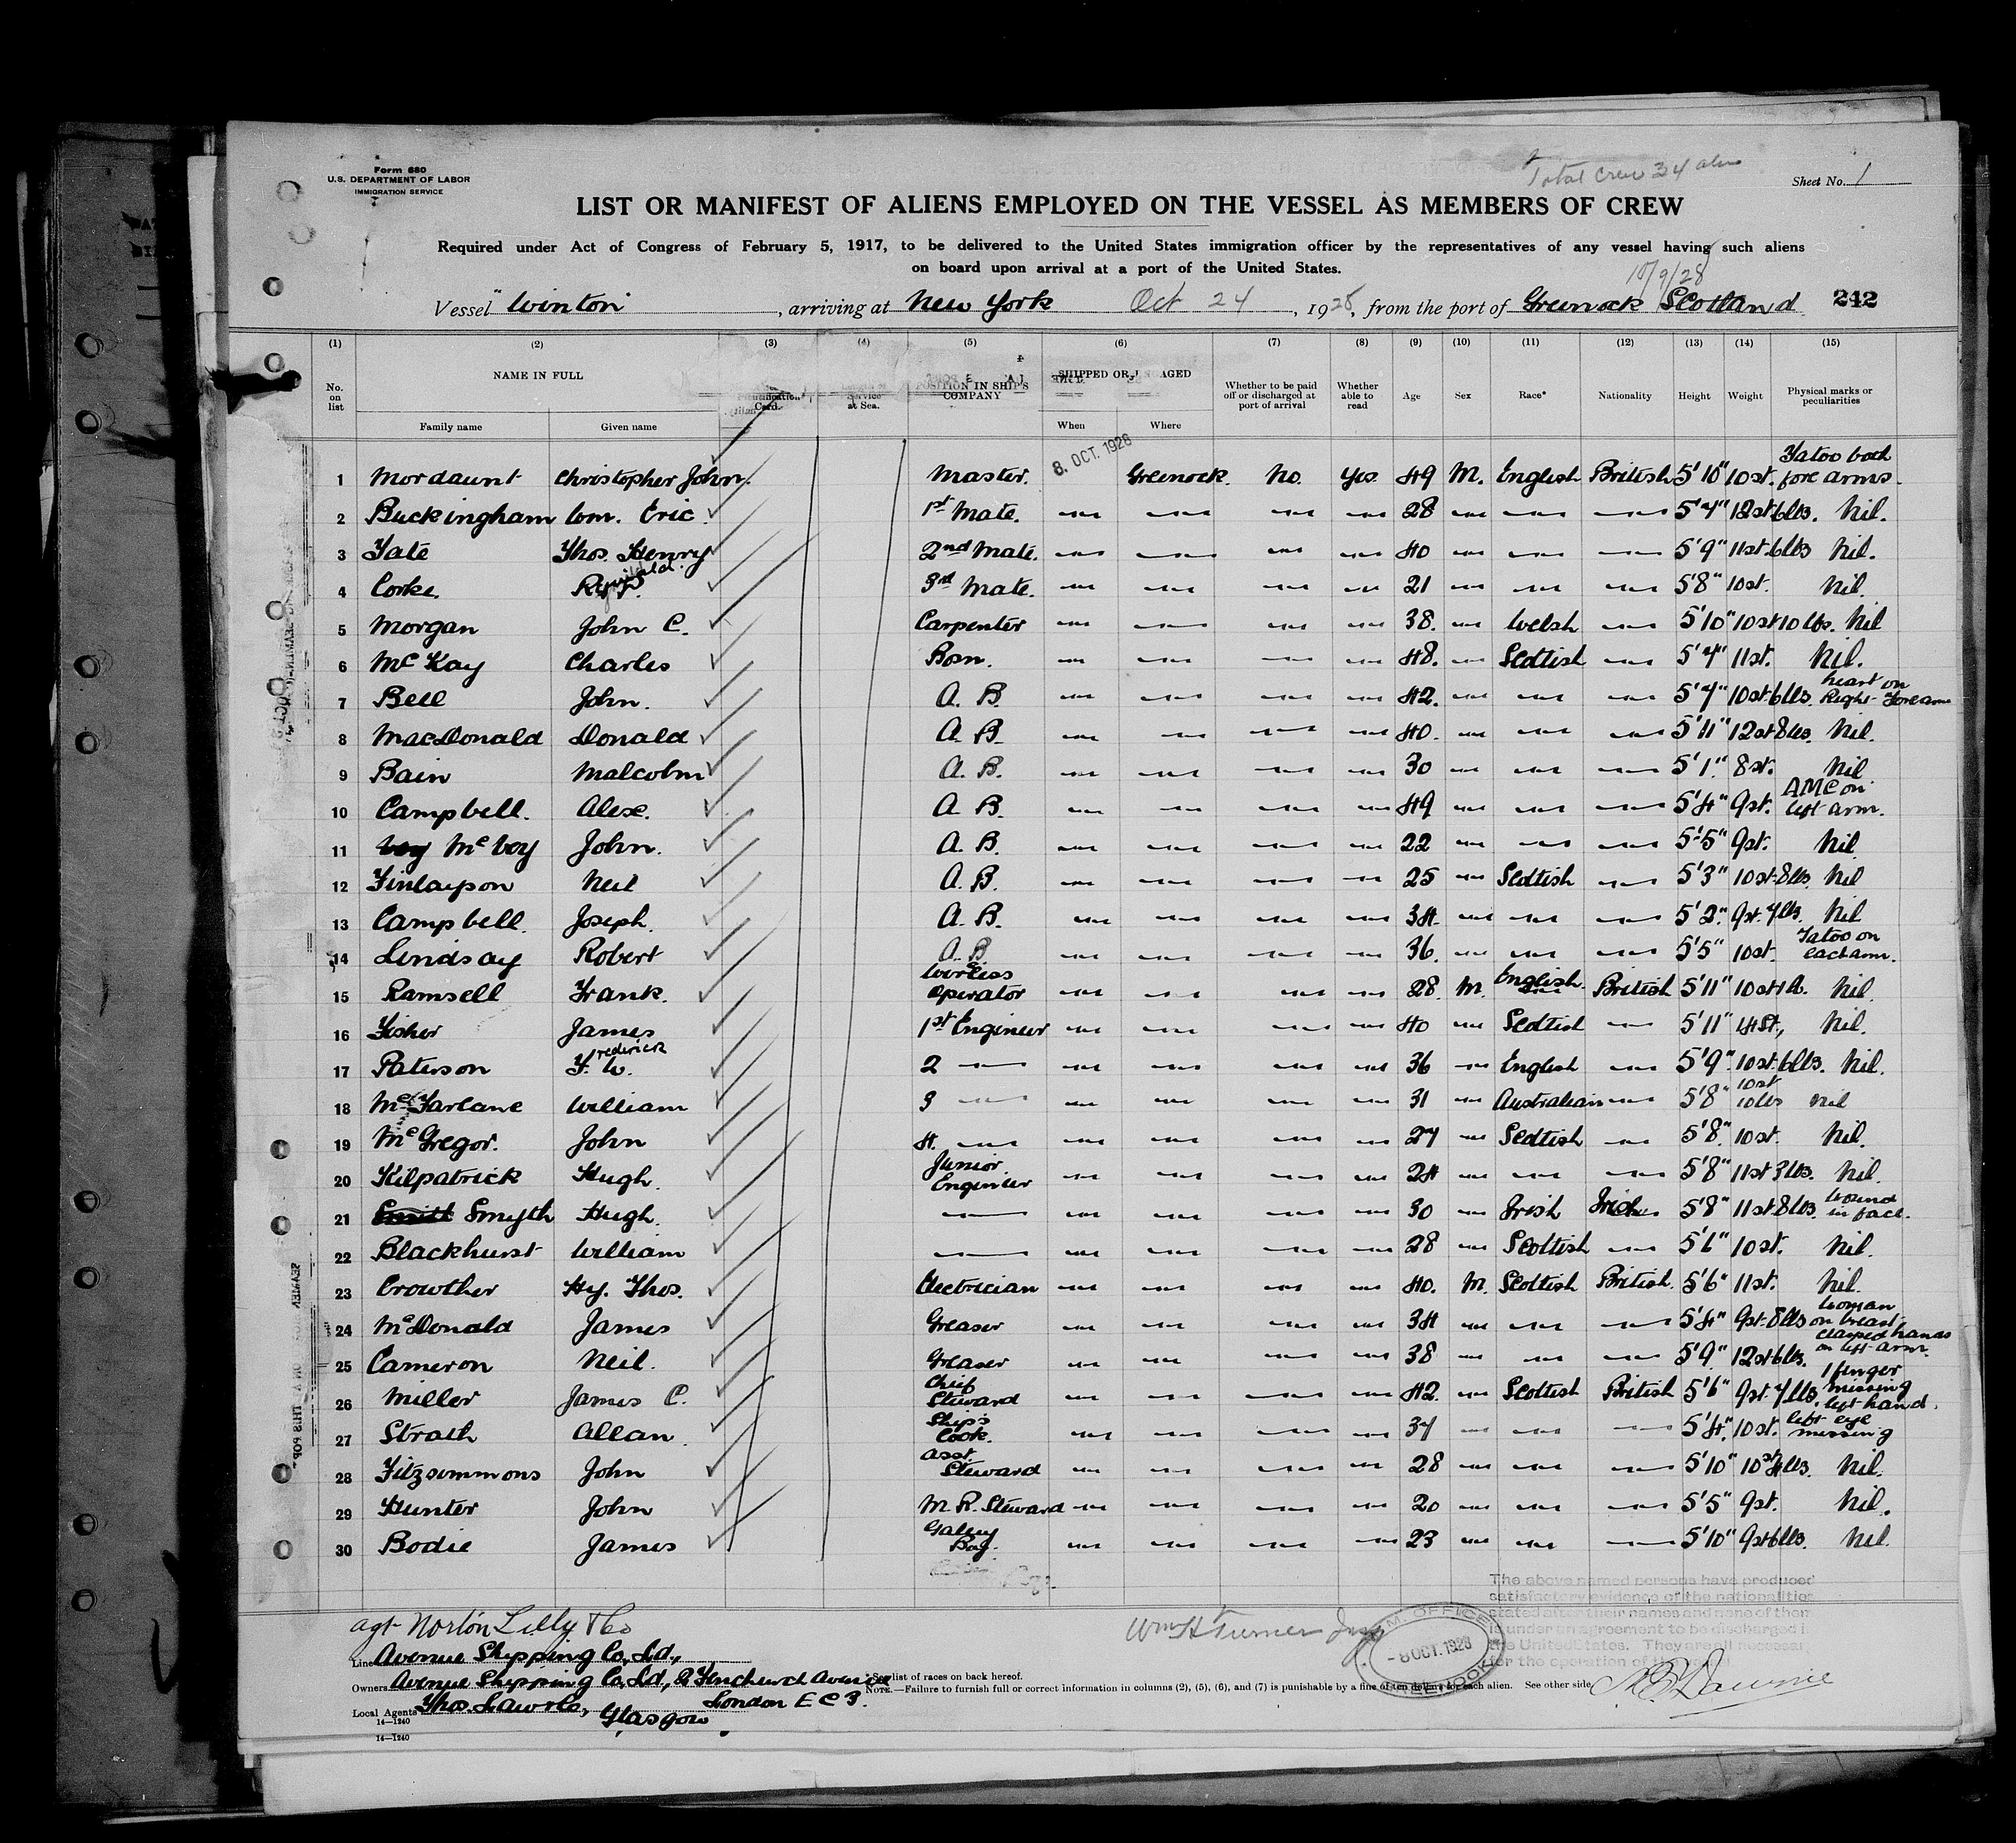 Form 680
U.S. DEPARTMENT OF LABOR
IMMIGRATION SERVICE
Total Crew 34 aliens
Sheet No. 1
LIST OR MANIFEST OF ALIENS EMPLOYED ON THE VESSEL AS MEMBERS OF CREW
Required under Act of Congress of February 5, 1917, to be delivered to the United States immigration officer by the representatives of any vessel having such aliens
on board upon arrival at a port of the United States.
10/9/28
Vessel "Winton" , arriving at New York Oct 24 , 1928, from the port of Greenock Scotland 242
(1) (2) (3) (4) (5) (6) (7) (8) (9) (10) (11) (12) (13) (14) (15)
No. on list NAME IN FULL Family name Given name Card. Service at Sea. POSITION IN SHIP'S COMPANY SHIPPED OR AGED When Where Whether to be paid off or discharged at port of arrival Whether able to read Age Sex Race* Nationality Height Weight Physical marks or peculiarities
8. OCT. 1928
1 Mordaunt Christopher John. Master. Greenock. No. Yes. 49 M. English British 5'10" 10st. Tatoo both fore arms.
2 Buckingham Wm. Eric. 1st Mate. — — — — 28 — — — 5'4" 12st 6lbs. Nil.
3 Tate Thos. Henry 2nd Mate. — — — — 40 — — — 5'9" 11st. 6lbs Nil.
4 Corke. Reginald. 3rd Mate. — — — — 21 — — — 5'8" 10st. Nil.
5 Morgan John C. Carpenter — — — — 38. — Welsh — 5'10" 10st 10lbs. Nil
6 McKay Charles Bosn. — — — — 48. — Scottish — 5'7" 11st. Nil.
7 Bell John. A. B. — — — — 42. — — — 5'7" 10st. 6lbs. heart on Right Forearm
8 MacDonald Donald A. B. — — — — 40. — — — 5'11" 12st 8lbs. Nil.
9 Bain Malcolm A. B. — — — — 30 — — — 5'1". 8st. Nil
10 Campbell. Alex. A. B. — — — — 49 — — — 5'4" 9st. A M C on left arm.
11 McVey John. A. B. — — — — 22 — — — 5'5" 9st. Nil
12 Finlayson Neil A. B. — — — — 25 — Scottish — 5'3" 10st. 8lbs. Nil
13 Campbell. Joseph. A. B. — — — — 34. — — — 5'2". 9st. 7lbs. Nil
14 Lindsay Robert A. B. — — — — 36. — — — 5'5" 10st. Tatoo on each arm.
15 Ramsell Frank. Wireless Operator — — — — 28. M. English. British 5'11" 10st 1lb. Nil.
16 Fisher James 1st Engineer — — — — 40 — Scottish — 5'11" 14St., Nil.
17 Paterson F.rederick W. 2 — — — — — 36 — English — 5'9". 10st. 6lbs. Nil.
18 McFarlane William 3 — — — — — 31 — Australian — 5'8" 10st 10lbs Nil
19 McGregor. John 4. — — — — — 27 — Scottish — 5'8". 10st. Nil.
20 Kilpatrick Hugh. Junior Engineer — — — — 24 — — — 5'8" 11st 3lbs. Nil.
21 Smith Smyth Hugh. — — — — — 30 — Irish Irish 5'8" 11st 8lbs. Wound in face.
22 Blackhurst William — — — — — 28 — Scottish — 5'6" 10st. Nil.
23 Crowther Hy. Thos. Electrician — — — — 40. M. Scottish British. 5'6" 11st. Nil.
24 McDonald James Greaser — — — — 34 — — — 5'4" 9st. 8lbs Woman on breast
25 Cameron Neil. Greaser — — — — 38 — — — 5'9". 12st 6lbs. clasped hands on left arm.
26 Miller James C. Chief Steward — — — — 42. — Scottish British 5'6" 9st. 7lbs. 1 finger missing left hand.
27 Strath Allan. Ship's Cook. — — — — 37 — — — 5'4". 10st. left eye missing
28 Fitzsimmons John Asst. Steward — — — — 28 — — — 5'10" 10st 4lbs. Nil.
29 Hunter John M. R. Steward — — — — 20 — — — 5'5" 9st. Nil.
30 Bodie James Galley Boy. — — — — 23 — — — 5'10" 9st 6lbs. Nil.
The above named persons have produced
satisfactory evidence of the nationalities
stated after their names and none of them
is under an agreement to be discharged i
the United States. They are all necessar
for the operation of the vessel
agt Norton Lilly & Co
Wm H Turner
- 8 OCT. 1928
Line Avenue Shipping Co. Ld.,
Owners Avenue Shipping Co. Ld., 2 Fenchurch Avenue
London E C 3.
Local Agents Thos. Law & Co, Glasgow
* See list of races on back hereof.
NOTE.—Failure to furnish full or correct information in columns (2), (5), (6), and (7) is punishable by a fine of ten dollars for each alien. See other side
14—1240
14—1240